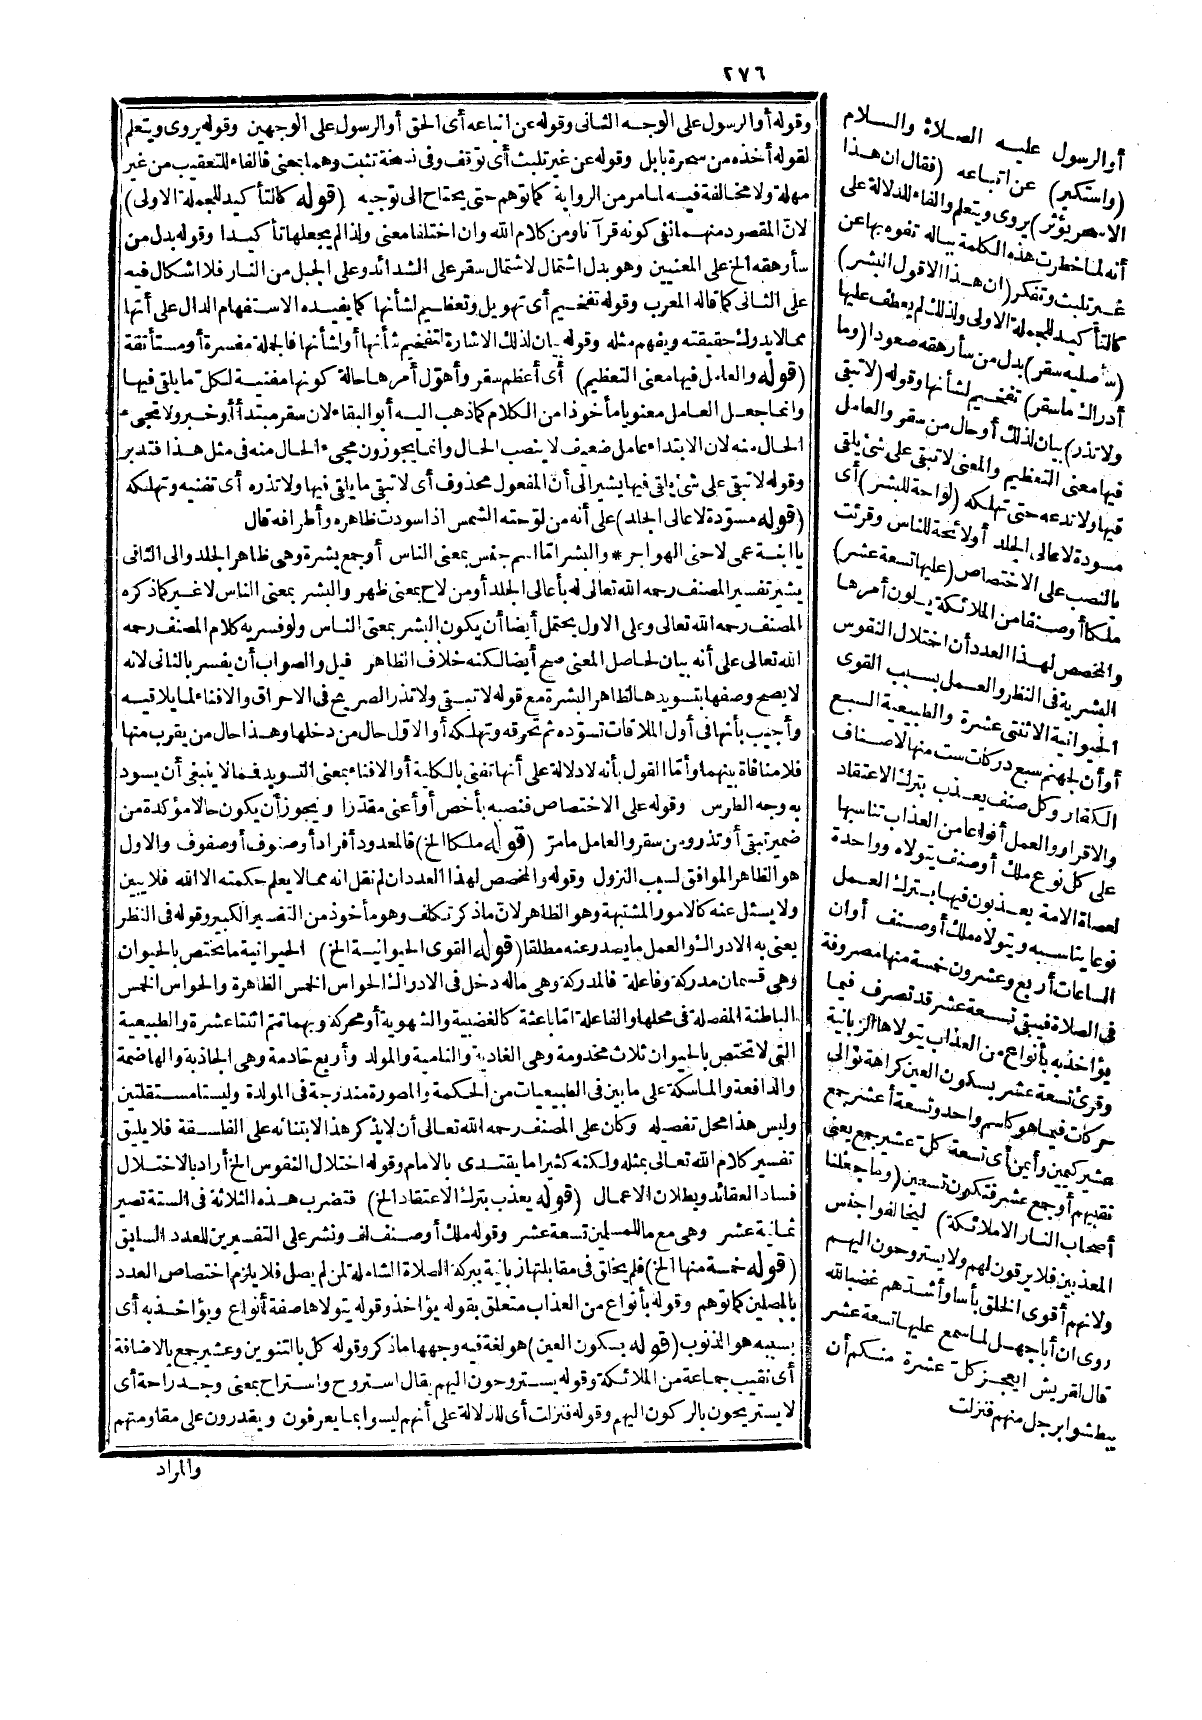 ٢٧٦
وقوله أو الرسول على الوجه الثانى وقوله عن اتباعه أى الحق أو الرسول على الوجهين وقوله يروى ويتعلم
لقوله أخذه من سحرة بابل وقوله عن غير تلبث أى توقف وفى نسخة تثبت وهما بمعنى فالفاء للتعقيب من غير
مهلة ولا مخالفة فيه لما مر من الرواية كما توهم حتى يحتاج الى توجيه (قوله كالتأكيد للجملة الاولى)
لانّ المقصود منهما نفى كونه قرآنا ومن كلام الله وان اختلفا معنى ولذا لم يجعلها تأكيدا وقوله بدل من
سأرهقه الخ على المعنيين وهو بدل اشتمال لاشتمال سقر على الشدائد وعلى الجبل من النار فلا اشكال فيه
على الثانى كما قاله المعرب وقوله تفخيم أى تهويل وتعظيم لشأنها كما يفيده الاستفهام الدال على أنها
مما لا يدرك حقيقته ويفهم مثله وقوله بيان لذلك الاشارة لتفخيم شأنها أو لشأنها فالجملة مفسرة أو مستأنفة
(قوله والعامل فيها معنى التعظيم) أى أعظم سقر وأهوّل أمرها حالة كونها مفنية لكل ما يلقى فيها
وانما جعل العامل معنويا مأخوذا من الكلام كما ذهب اليه أبو البقاء لان سقر مبتدأ أو خبر ولا تجىء
الحال منه لان الابتداء عامل ضعيف لا ينصب الحال وانما يجوزون مجىء الحال منه فى مثل هذا فتدبر
وقوله لا تبقى على شئ يلقى فيها يشير الى أنّ المفعول محذوف أى لا تبقى ما يلقى فيها ولا تذره أى تفنيه وتهلكه
(قوله مسوّدة لاعالى الجلد) على أنه من لوّحته الشمس اذا سودت ظاهره وأطرافه قال
يا ابنة عمى لاحنى الهواجر * والبشر امّا اسم جنس بمعنى الناس أو جمع بشرة وهى ظاهر الجلد والى الثانى
يشير تفسير المصنف رحمه الله تعالى له بأعالى الجلد أو من لاح بمعنى ظهر والبشر بمعنى الناس لا غير كما ذكره
المصنف رحمه الله تعالى وعلى الاول يحتمل أيضا أن يكون البشر بمعنى الناس ولو فسر به كلام المصنف رحمه
الله تعالى على أنه بيان لحاصل المعنى صح أيضا لكنه خلاف الظاهر قيل والصواب أن يفسر بالثانى لانه
لا يصح وصفها بتسويدها لظاهر البشرة مع قوله لا تبقى ولا تذر الصريح فى الاحراق والافناء لما يلاقيه
وأجيب بأنها فى أول الملاقات تسوّده ثم تحرقه وتهلكه أو الاول حال من دخلها وهذا حال من يقرب منها
فلا منافاة بينهما وأمّا القول بأنه لا دلالة على أنها تفنى بالكلية أو الافناء بمعنى التسويد فمما لا ينبغى أن يسود
به وجه الطرس وقوله على الاختصاص فنصبه بأخص أو أعنى مقدّرا ويجوز أن يكون حالا مؤكدة من
ضمير تبقى أو تذر ومن سقر والعامل ما مرّ (قوله ملكا الخ) فالمعدود أفراد أو صنوف أو صفوف والاول
هو الظاهر الموافق لسبب النزول وقوله والمخصص لهذا العدد ان لم نقل انه مما لا يعلم حكمته الا الله فلا يبين
ولا يسئل عنه كالامور المشتبهة وهو الظاهر لانّ ما ذكر تكلف وهو مأخوذ من التفسير الكبير وقوله فى النظر
يعنى به الادراك والعمل ما يصدر عنه مطلقا (قوله القوى الحيوانية الخ) الحيوانية ما يختص بالحيوان
وهى قسمان مدركة وفاعلة فالمدركة وهى ماله دخل فى الادراك الحواس الخمس الظاهرة والحواس الخمس
الباطنة المفصلة فى محلها والفاعلة امّا باعثة كالغضبية والشهوية أو محركة وبهما تتم اثنتا عشرة والطبيعية
التى لا تختص بالحيوان ثلاث مخدومة وهى الغاذية والنامية والمولد وأربع خادمة وهى الجاذبة والهاضمة
والدافعة والماسكة على ما بين فى الطبيعيات من الحكمة والمصورة مندرجة فى المولدة وليستا مستقلتين
وليس هذا محل تفصيله وكان على المصنف رحمه الله تعالى أن لا يذكر هذا الابتنائه على الفلسفة فلا يليق
تفسير كلام الله تعالى بمثله ولكنه كثيرا ما يقتدى بالامام وقوله اختلال النفوس الخ أراد بالاختلال
فساد العقائد وبطلان الاعمال (قوله يعذب بترك الاعتقاد الخ) فتضرب هذه الثلاثة فى الستة تصير
ثمانية عشر وهى مع ما للمسلمين تسعة عشر وقوله ملك أو صنف لف ونشر على التفسيرين للعدد السابق
(قوله خمسة منها الخ) فلم يخلق فى مقابلتها زبانية ببركة الصلاة الشاملة لمن لم يصل فلا يلزم اختصاص العدد
بالمصلين كما توهم وقوله بأنواع من العذاب متعلق بقوله يؤاخذ وقوله يتولاها صفة أنواع ويؤاخذ به أى
بسببه هو الذنوب (قوله بسكون العين) هو لغة فيه وجهها ما ذكر وقوله كل بالتنوين وعشير جمع بالاضافة
أى نقيب جماعة من الملائكة وقوله يستروحون اليهم يقال استروح واستراح بمعنى وجد راحة أى
لا يستريحون بالركون اليهم وقوله فنزلت أى للدلالة على أنهم ليسوا بما يعرفون ويقدرون على مقاومتهم
والمراد
أو الرسول عليه الصلاة والسلام
(واستكبر) عن اتباعه (فقال ان هذا
الا سحر يؤثر) يروى ويتعلم والفاء للدلالة على
أنه لما خطرت هذه الكلمة بباله تفوه بها عن
غير تلبث وتفكر (ان هذا الا قول البشر)
كالتأكيد للجملة الاولى ولذلك لم يعطف عليها
(سأصليه سقر) بدل من سأرهقه صعودا (وما
أدراك ما سقر) تفخيم لشأنها وقوله (لا تبقى
ولا تذر) بيان لذلك أو حال من سقر والعامل
فيها معنى التعظيم والمعنى لا تبقى على شئ يلقى
فيها ولا تدعه حتى تهلكه (لواحة للبشر) أى
مسودة لاعالى الجلد أو لائحة للناس وقرئت
بالنصب على الاختصاص (عليها تسعة عشر)
ملكا أو صنفا من الملائكة يلون أمرها
والمخصص لهذا العدد أن اختلال النفوس
البشرية فى النظر والعمل بسبب القوى
الحيوانية الاثنتى عشرة والطبيعية السبع
أو أن لجهنم سبع دركات ست منها لاصناف
الكفار وكل صنف يعذب بترك الاعتقاد
والاقرار والعمل أنواعا من العذاب تناسبها
على كل نوع ملك أو صنف يتولاه وواحدة
لعصاة الامة يعذبون فيها بترك العمل
نوعا يناسبه ويتولاه ملك أو صنف أو ان
الساعات أربع وعشرون خمسة منها مصروفة
فى الصلاة فيبقى تسعة عشر قد تصرف فيما
يؤاخذ به بأنواع من العذاب يتولاها الزبانية
وقرئ تسعة عشر بسكون العين كراهة توالى
حركات فيما هو كاسم واحد وتسعة أعشر جمع
عشير كيمين وأيمن أى تسعة كل عشير جمع يعنى
نقيبهم أو جمع عشر فتكون تسعين (وما جعلنا
أصحاب النار الا ملائكة) ليخالفوا جنس
المعذبين فلا يرقون لهم ولا يستروحون اليهم
ولانهم أقوى الخلق بأسا وأشدهم غضبا لله
روى ان أبا جهل لما سمع عليها تسعة عشر
قال لقريش أيعجز كل عشرة منكم أن
يبطشوا برجل منهم فنزلت